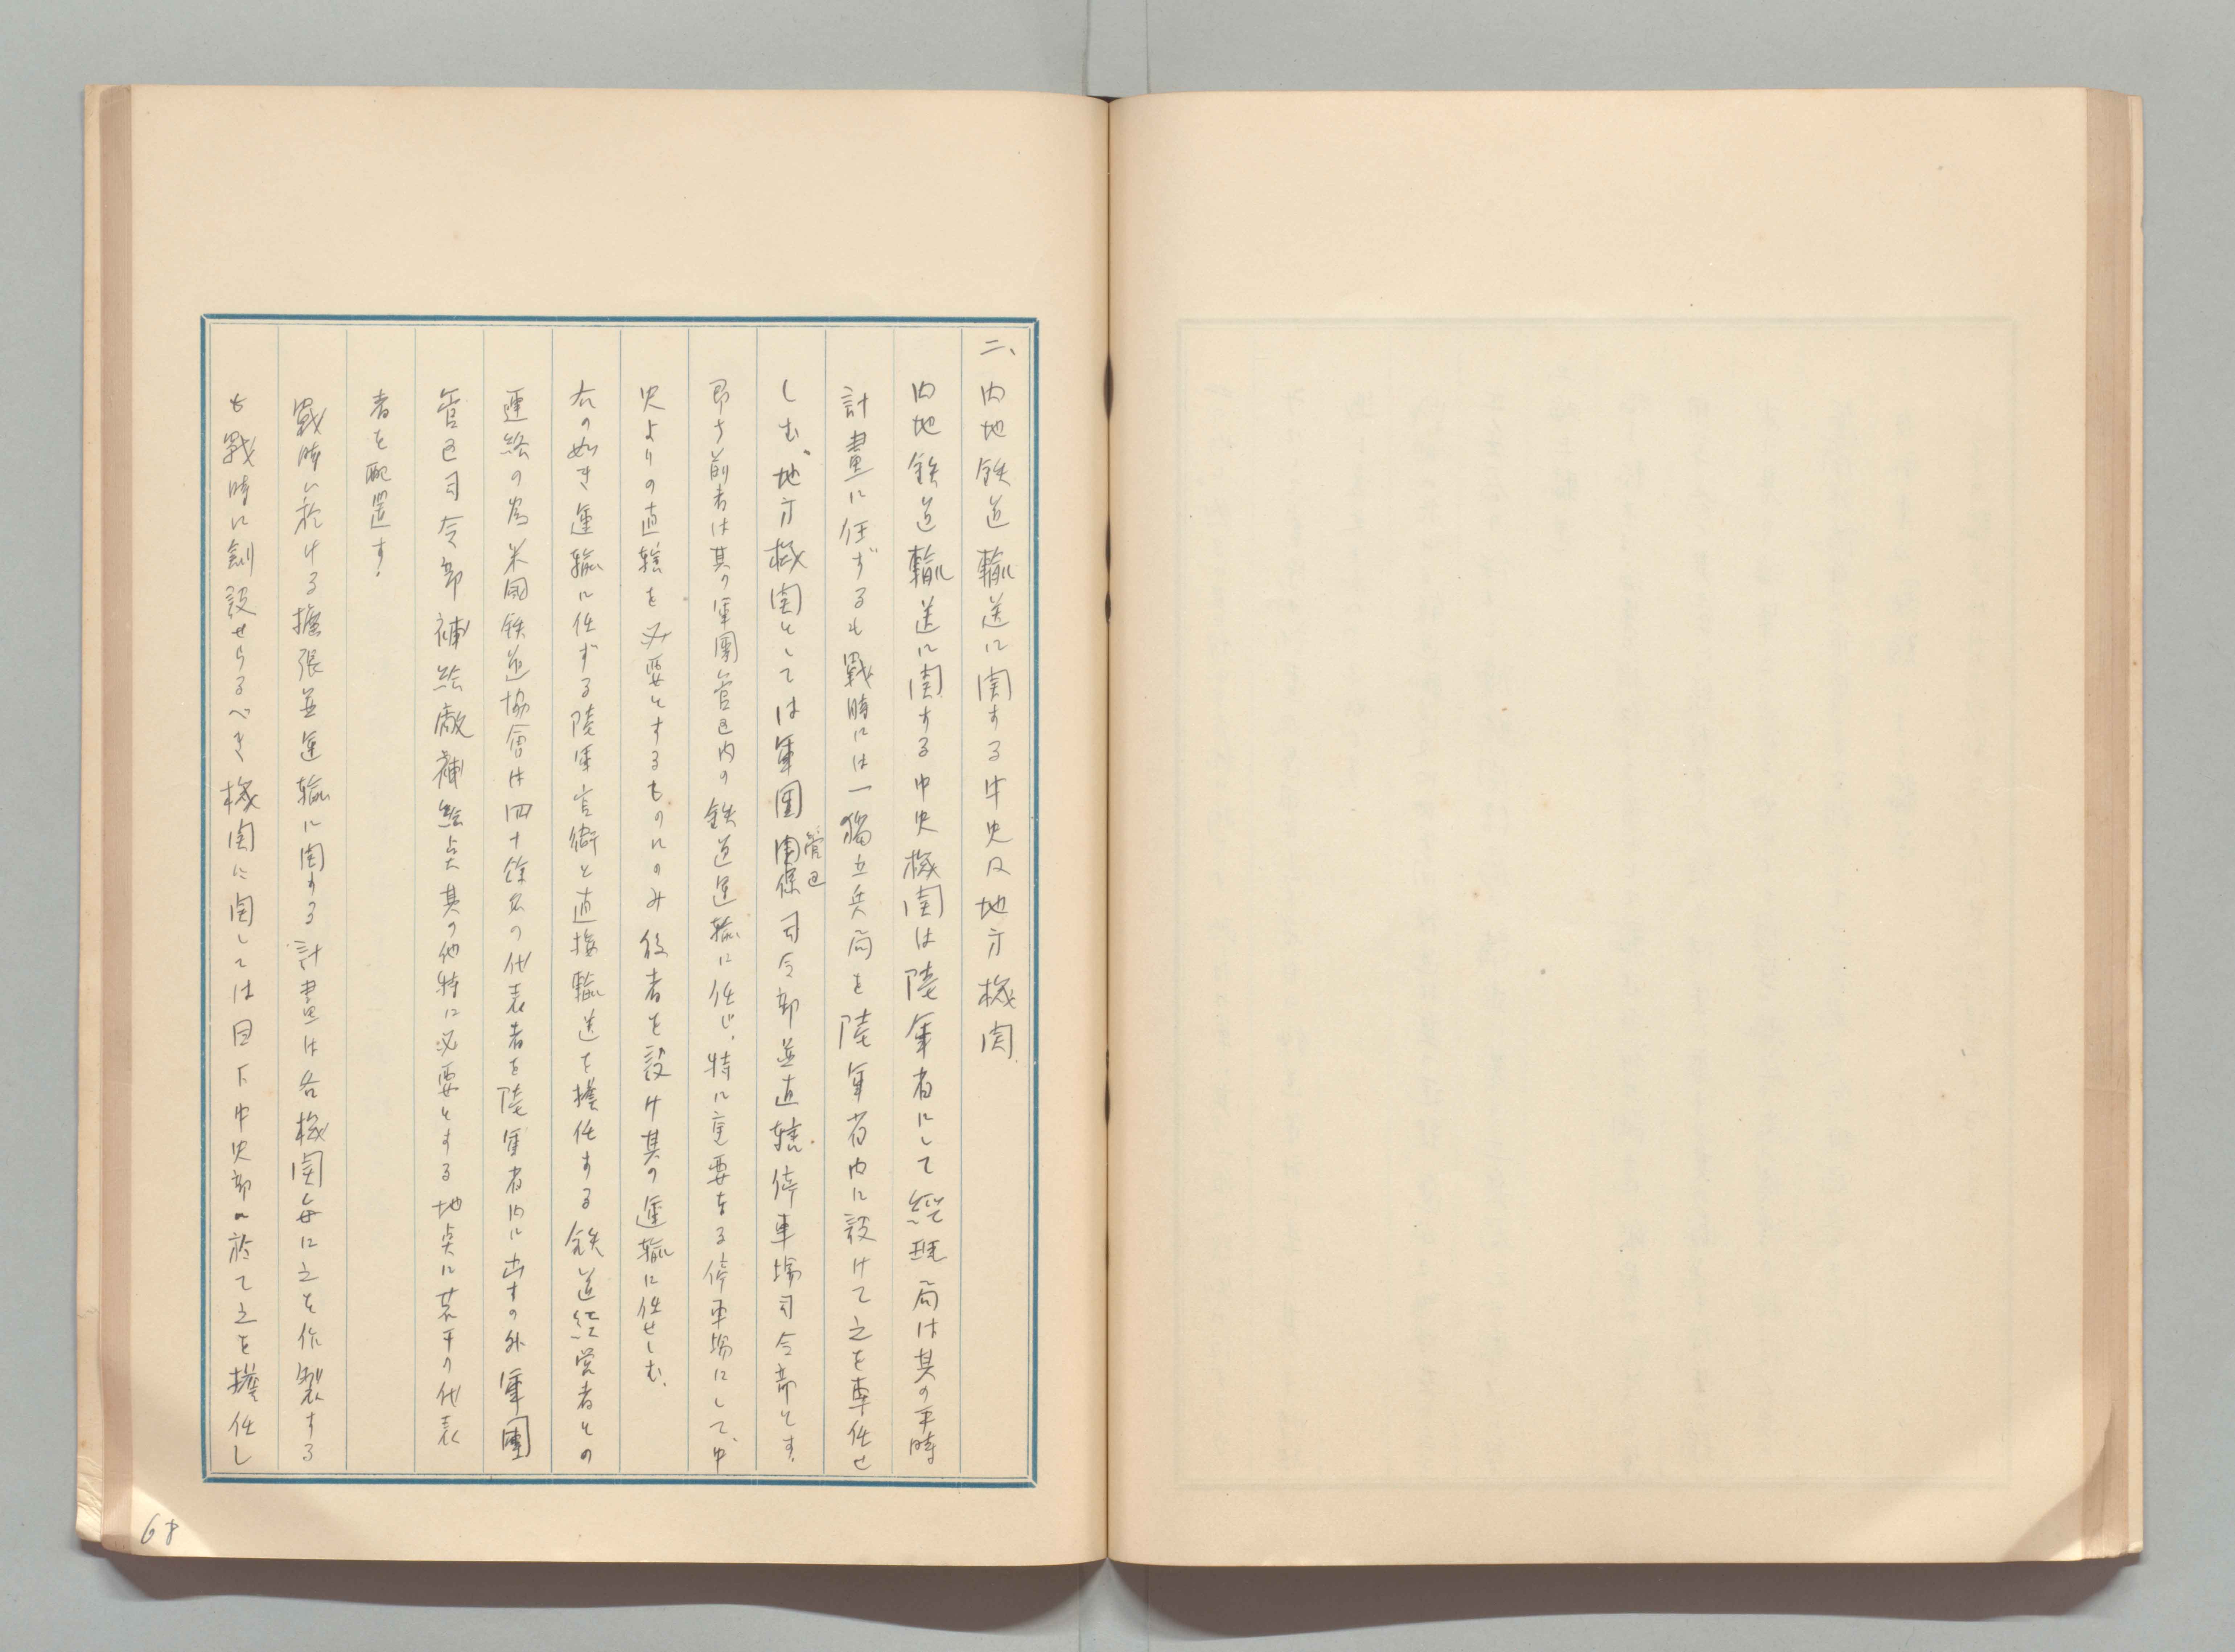 二、内地鉄道輸送に関する中央及地方機関
内地鉄道輸送に関する中央機関は陸軍省にして経理局は其の平時
計畫に任ずるも戰時には一獨立兵局を陸軍省内に設けて之を專任せ
しむ、地方機関としては軍團管区司令部並直轄停車場司令部とす、
即ち前者は其の軍團管区内の鉄道運輸に任じ、特に重要なる停車場にして、中
央よりの直轄を必要とするものにのみ後者を設け其の運輸に任せしむ、
右の如き運輸に任ずる陸軍官衙と直接輸送を擔任する鉄道経営者との
連絡の為米國鉄道協會は四十餘名の代表者を陸軍省内に出すの外軍團
管区司令部補給廠補給点其の他特に必要とする地点に若干の代表
者を配置す、
戰時に於ける擴張並運輸に関する計畫は各機関毎に之を作製する
も戰時に創設せらるべき機関に関しては目下中央部に於て之を擔任し
68